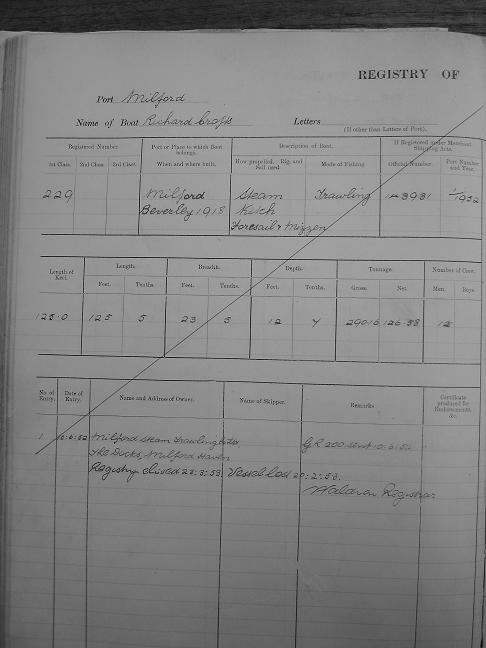 REGISTRY OF
Port Milford
Name of Boat Richard Crofts Letters
(If other than Letters of Port).
Registered Number
Port or Place to which Boat belongs.
Description of Boat.
If Registered under Merchant Shipping Acts.
1st Class. 2nd Class. 3rd Class.
When and where built.
How propelled, Rig, and Sail used. Mode of Fishing.
Official Number. Port Number and Year.
229 Milford Steam Trawling 1/1952
Beverley 1918 Ketch
Foresail & Mizzen
Length of Keel.
Length. Breadth. Depth. Tonnage. Number of Crew.
Feet. Tenths. Feet. Tenths. Feet. Tenths. Gross. Net. Men. Boys.
125.0 125 5 23 5 12 290.16 126.58 12
No. of Entry. Date of Entry. Name and Address of Owner. Name of Skipper. Remarks Certificate produced for Endorsements, &c.
1 Milford Steam Trawling Co Ltd
The Docks, Milford Haven
Registry closed 23:3:53. Vessel lost 20:2:53.
Waldron Registrar